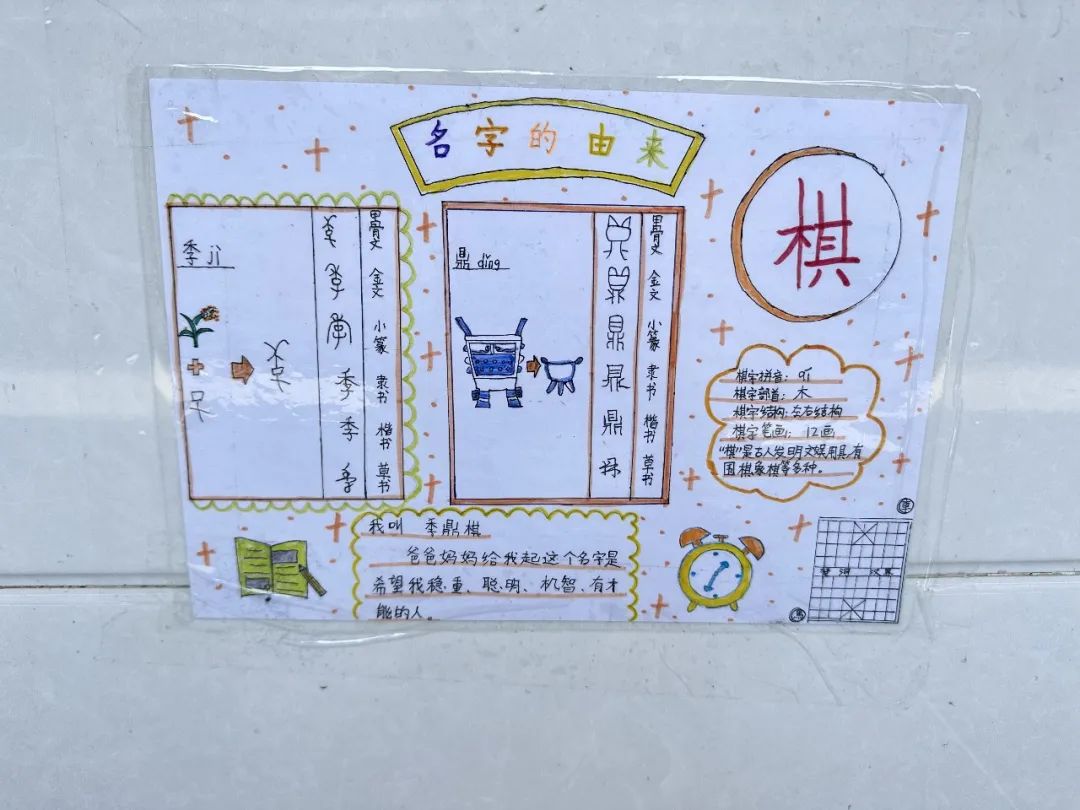 名字的由来
季 jì
季
季
甲骨文
金文
小篆
隶书
楷书
草书
鼎 dǐng
鼎
甲骨文
金文
小篆
隶书
楷书
草书
棋
棋字拼音：qí
棋字部首：木
棋字结构：左右结构
棋字笔画：12画
"棋"是古人发明文娱用具,有
围棋象棋等多种。
我叫 季鼎棋
爸爸妈妈给我起这个名字是
希望我稳重、聪明、机智、有才
能的人。
楚河 汉界